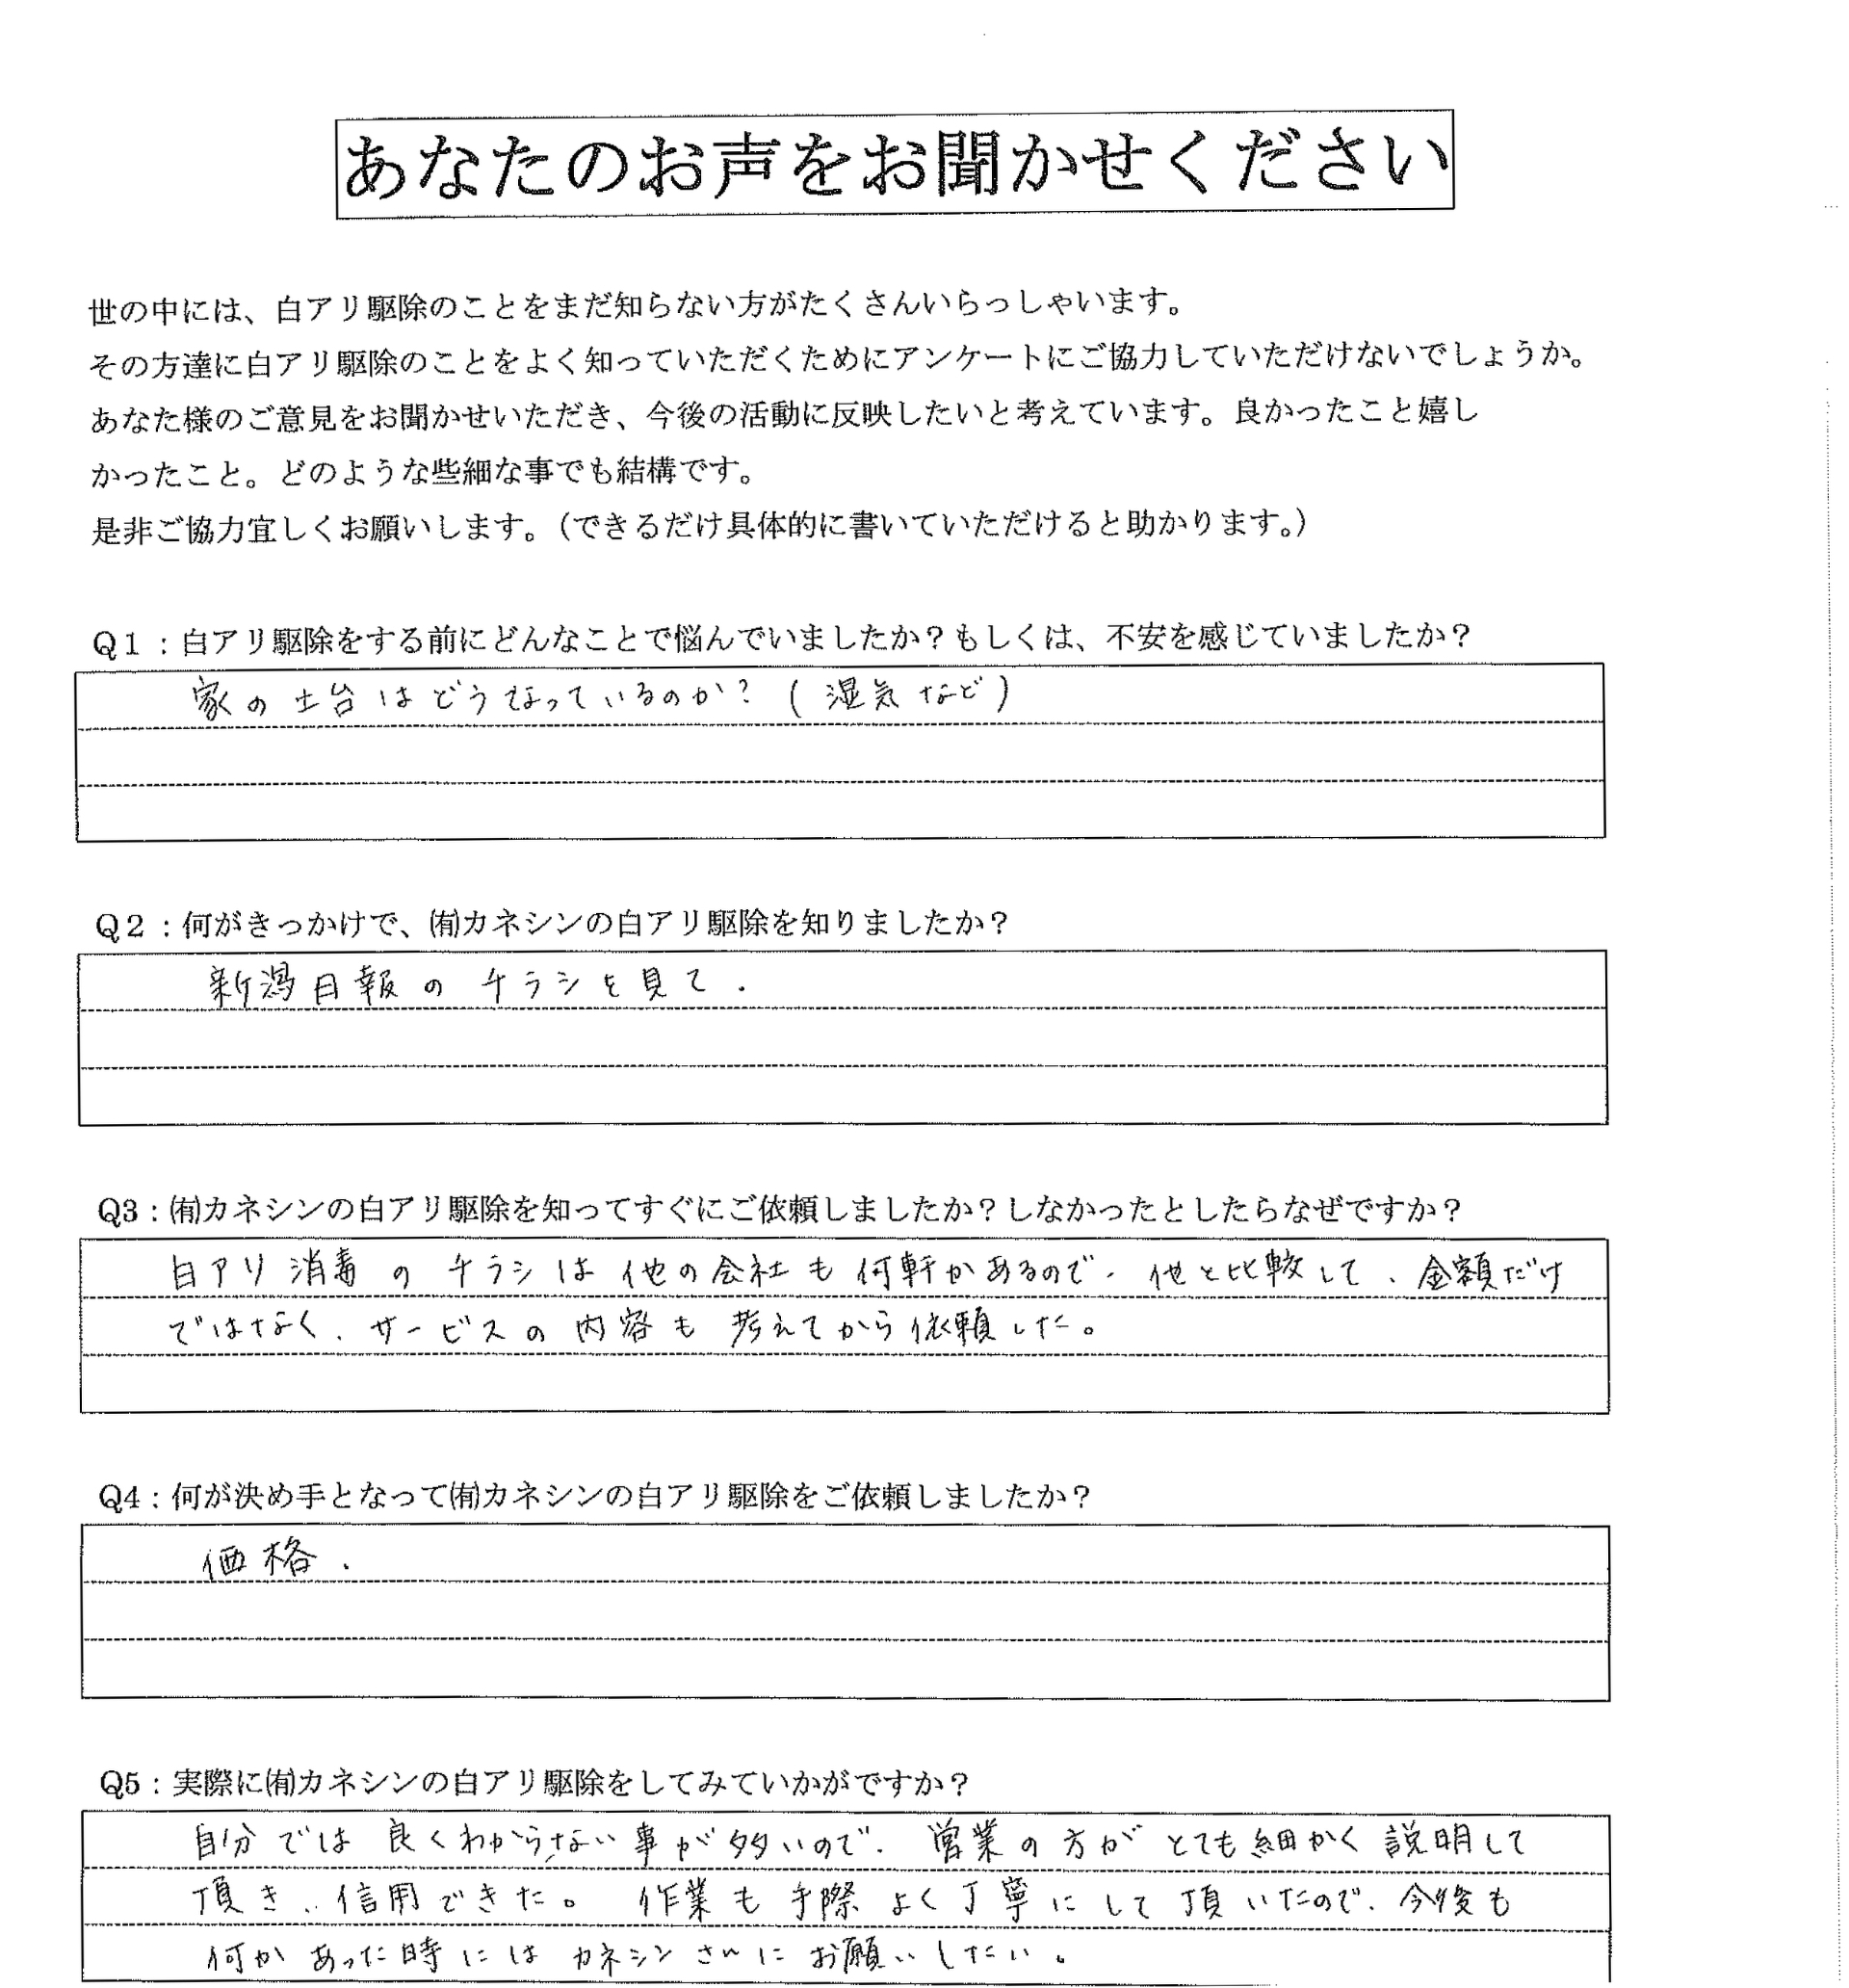 あなたのお声をお聞かせください
世の中には、白アリ駆除のことをまだ知らない方がたくさんいらっしゃいます。
その方達に白アリ駆除のことをよく知っていただくためにアンケートにご協力していただけないでしょうか。
あなた様のご意見をお聞かせいただき、今後の活動に反映したいと考えています。良かったこと嬉し
かったこと。どのような些細な事でも結構です。
是非ご協力宜しくお願いします。（できるだけ具体的に書いていただけると助かります。）
Q1：白アリ駆除をする前にどんなことで悩んでいましたか？もしくは、不安を感じていましたか？
家の土台はどうなっているのか？（湿気など）
Q2：何がきっかけで、㈲カネシンの白アリ駆除を知りましたか？
新潟日報のチラシを見て．
Q3：㈲カネシンの白アリ駆除を知ってすぐにご依頼しましたか？しなかったとしたらなぜですか？
白アリ消毒のチラシは他の会社も何軒かあるので、他と比較して、金額だけ
ではなく、サービスの内容も考えてから依頼した。
Q4：何が決め手となって㈲カネシンの白アリ駆除をご依頼しましたか？
価格．
Q5：実際に㈲カネシンの白アリ駆除をしてみていかがですか？
自分では良くわからない事が多いので、営業の方がとても細かく説明して
頂き、信用できた。作業も手際よく丁寧にして頂いたので、今後も
何かあった時にはカネシンさんにお願いしたい。